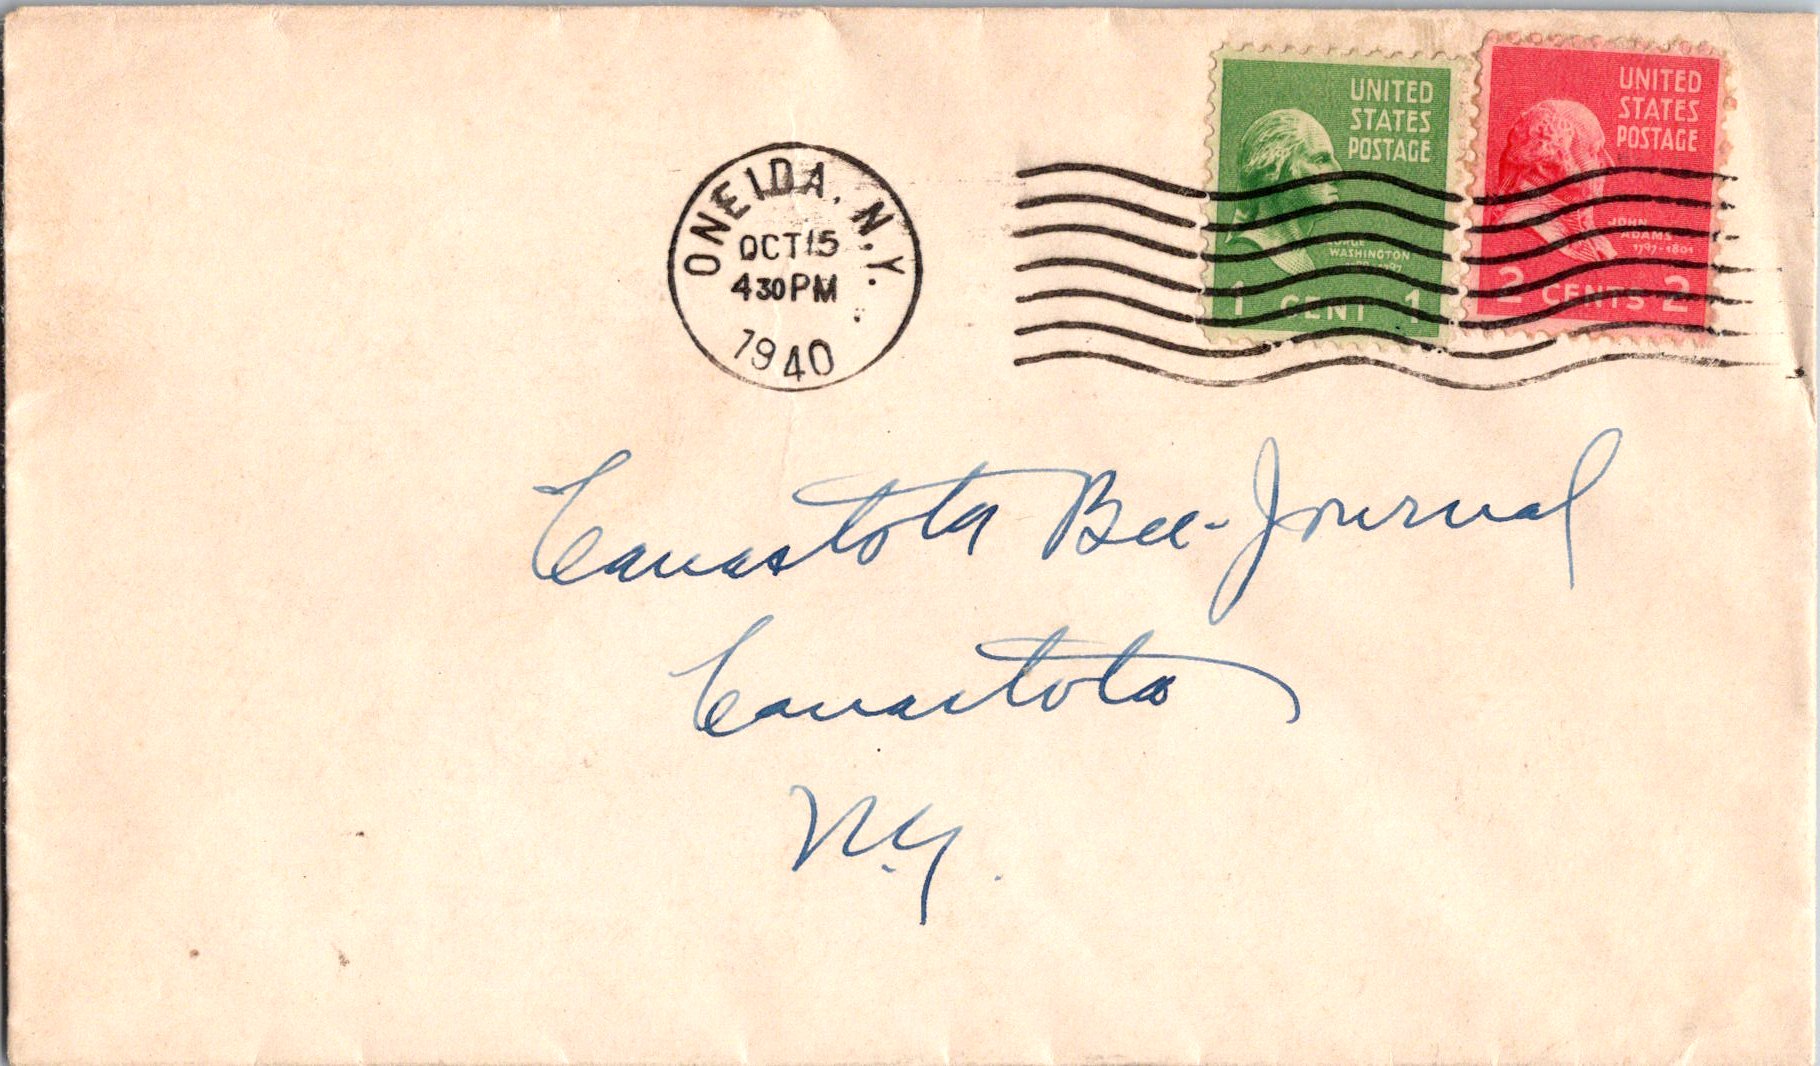 ONEIDA, N.Y.
OCT 15
4 30 PM
1940
UNITED
STATES
POSTAGE
WASHINGTON
1 CENT 1
UNITED
STATES
POSTAGE
JOHN
ADAMS
1797-1801
2 CENTS 2
Canastota Bee-Journal
Canastota
N.Y.